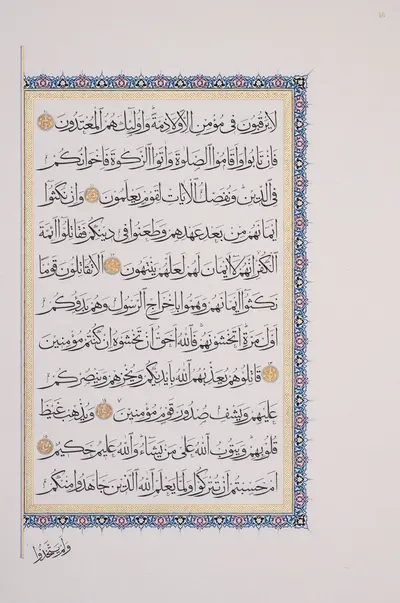 لا يرقبون في مؤمن إلا ولا ذمة وأولئك هم المعتدون
فإن تابوا وأقاموا الصلوة وآتوا الزكوة فإخوانكم
في الدين ونفصل الآيات لقوم يعلمون وإن نكثوا
أيمانهم من بعد عهدهم وطعنوا في دينكم فقاتلوا أئمة
الكفر إنهم لا أيمان لهم لعلهم ينتهون ألا تقاتلون قوما
نكثوا أيمانهم وهموا بإخراج الرسول وهم بدؤكم
أول مرة أتخشونهم فالله أحق أن تخشوه إن كنتم مؤمنين
قاتلوهم يعذبهم الله بأيديكم ويخزهم وينصركم
عليهم ويشف صدور قوم مؤمنين ويذهب غيظ
قلوبهم ويتوب الله على من يشاء والله عليم حكيم
أم حسبتم أن تتركوا ولما يعلم الله الذين جاهدوا منكم
ولم يتخذوا